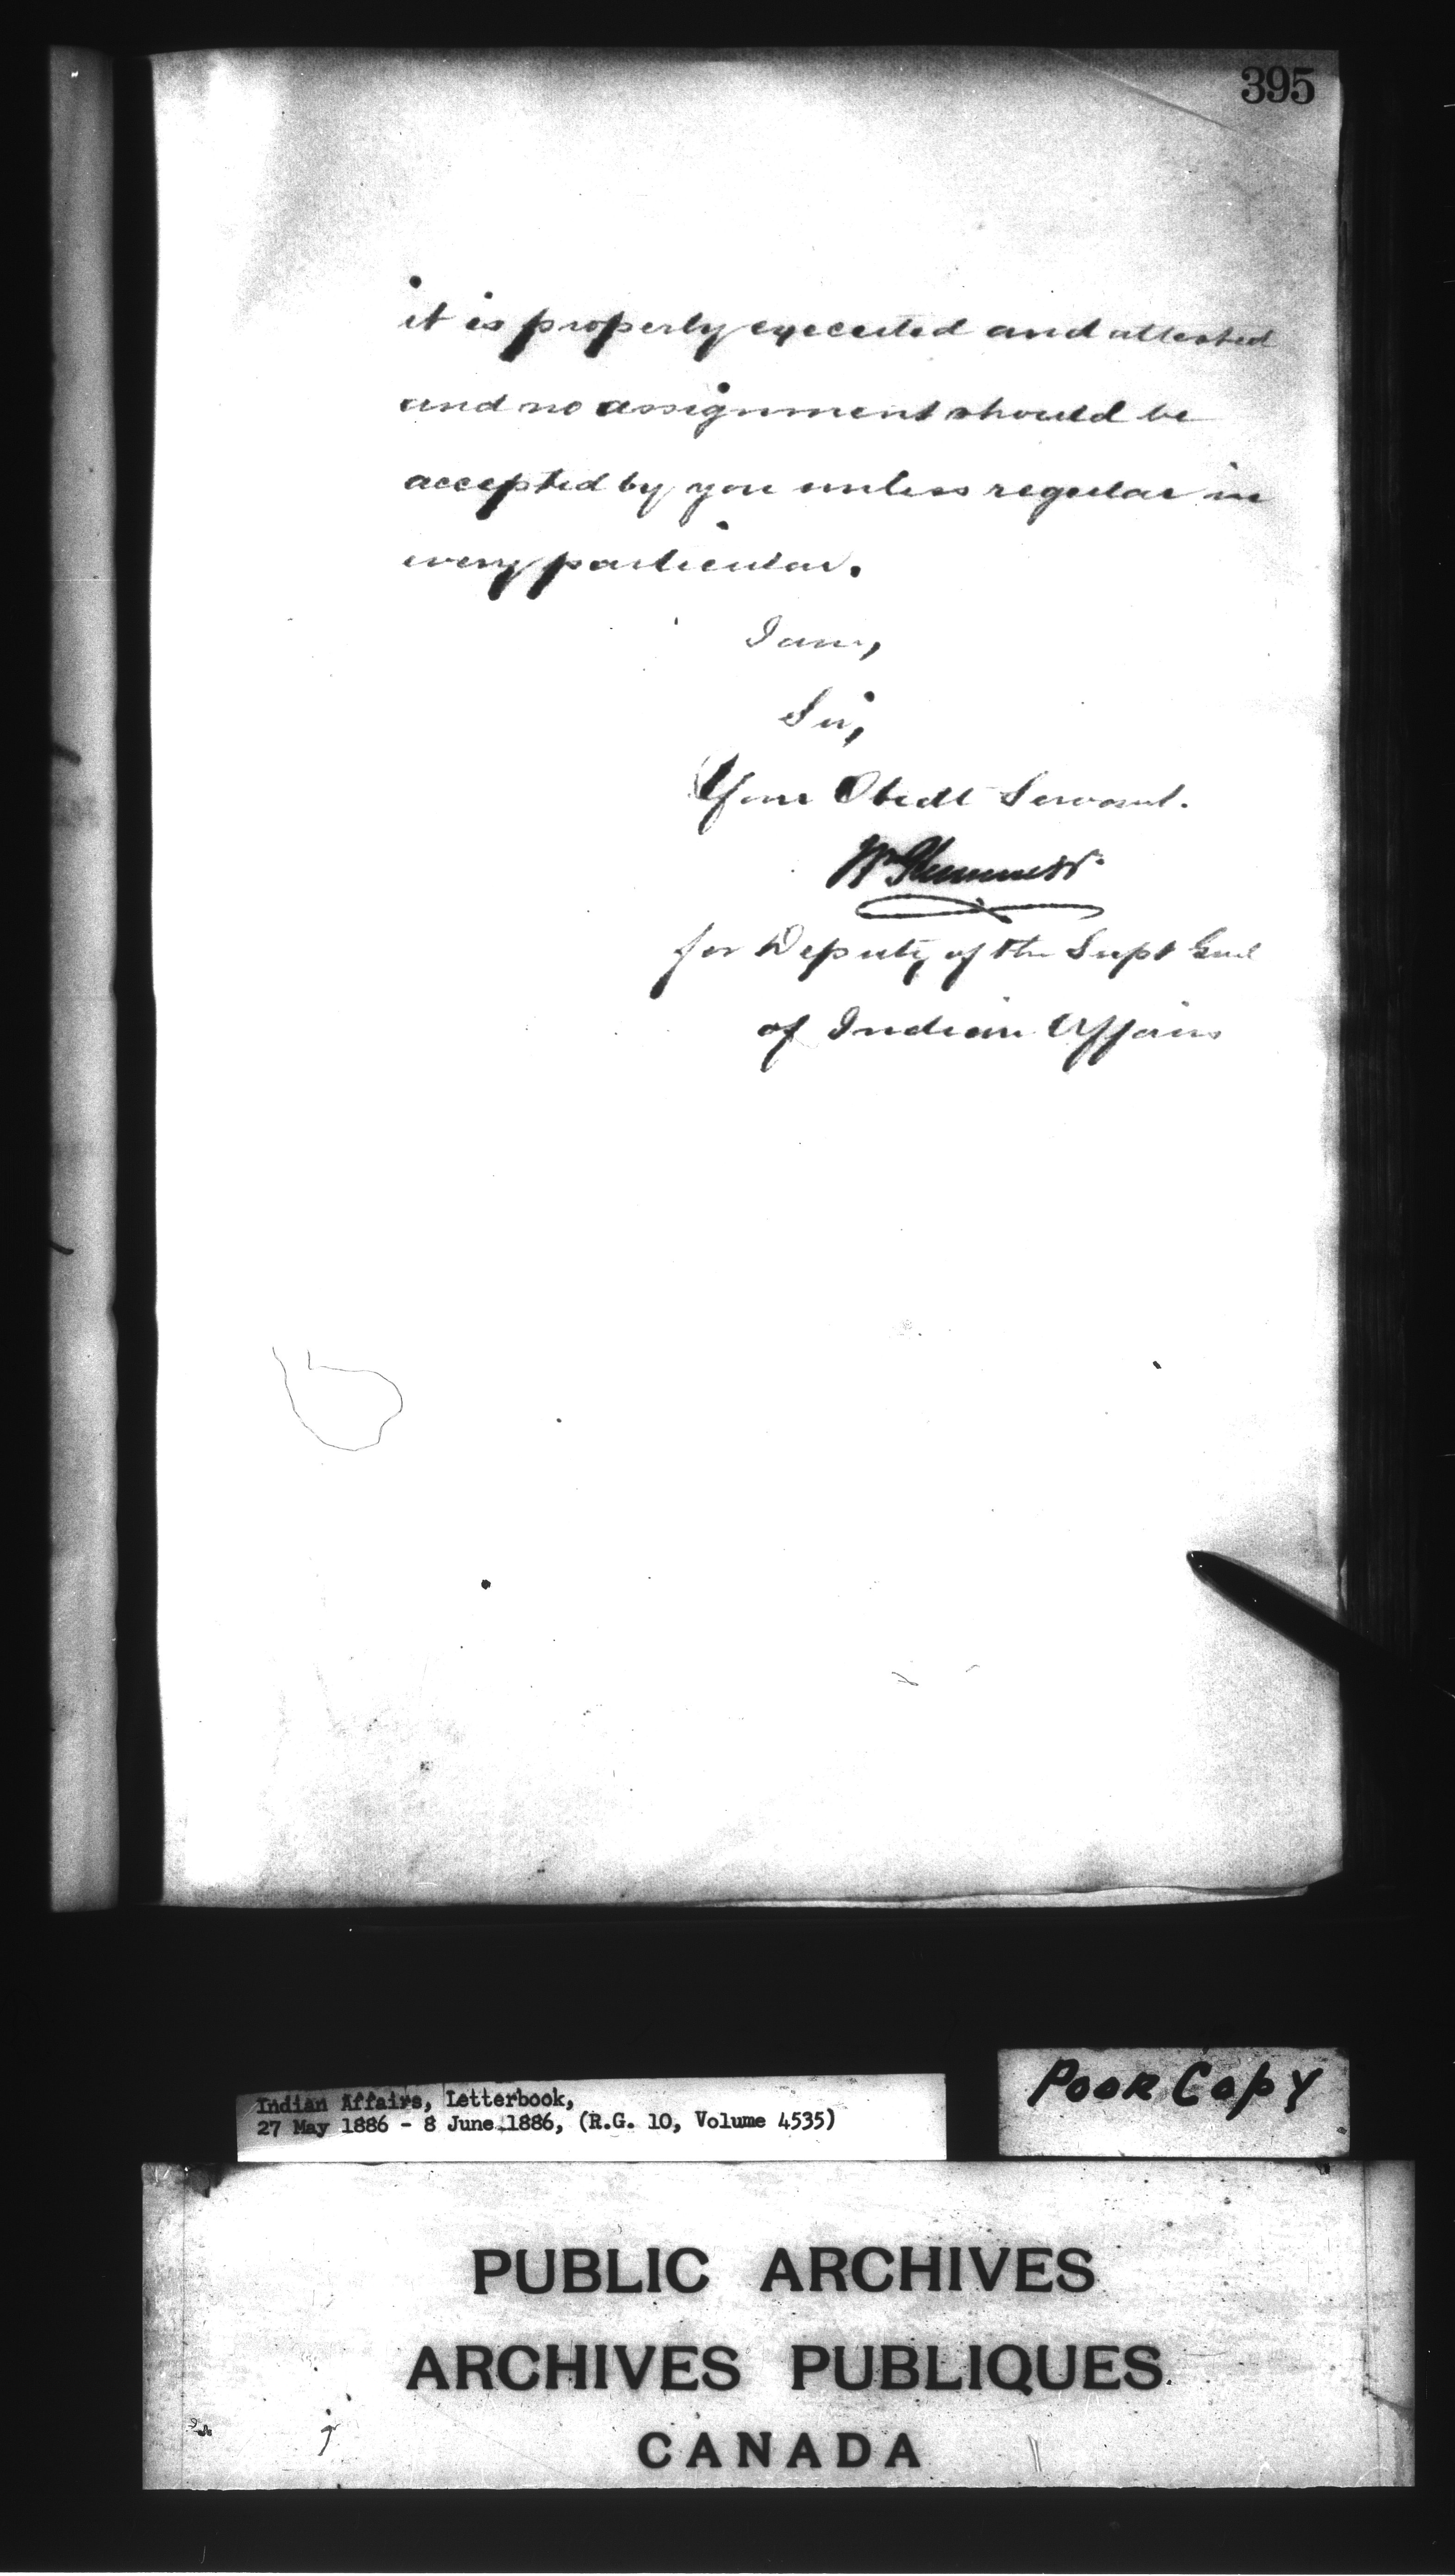 395
it is properly executed and attested
and no assignment should be
accepted by you unless regular in
every particular.
I am,
Sir,
Your Obedt Servant.
Wm Plummer
for Deputy of the Supt Genl
of Indian Affairs
Indian Affairs, Letterbook,
27 May 1886 - 8 June 1886, (R.G. 10, Volume 4535)
POOR COPY
PUBLIC ARCHIVES
ARCHIVES PUBLIQUES
CANADA